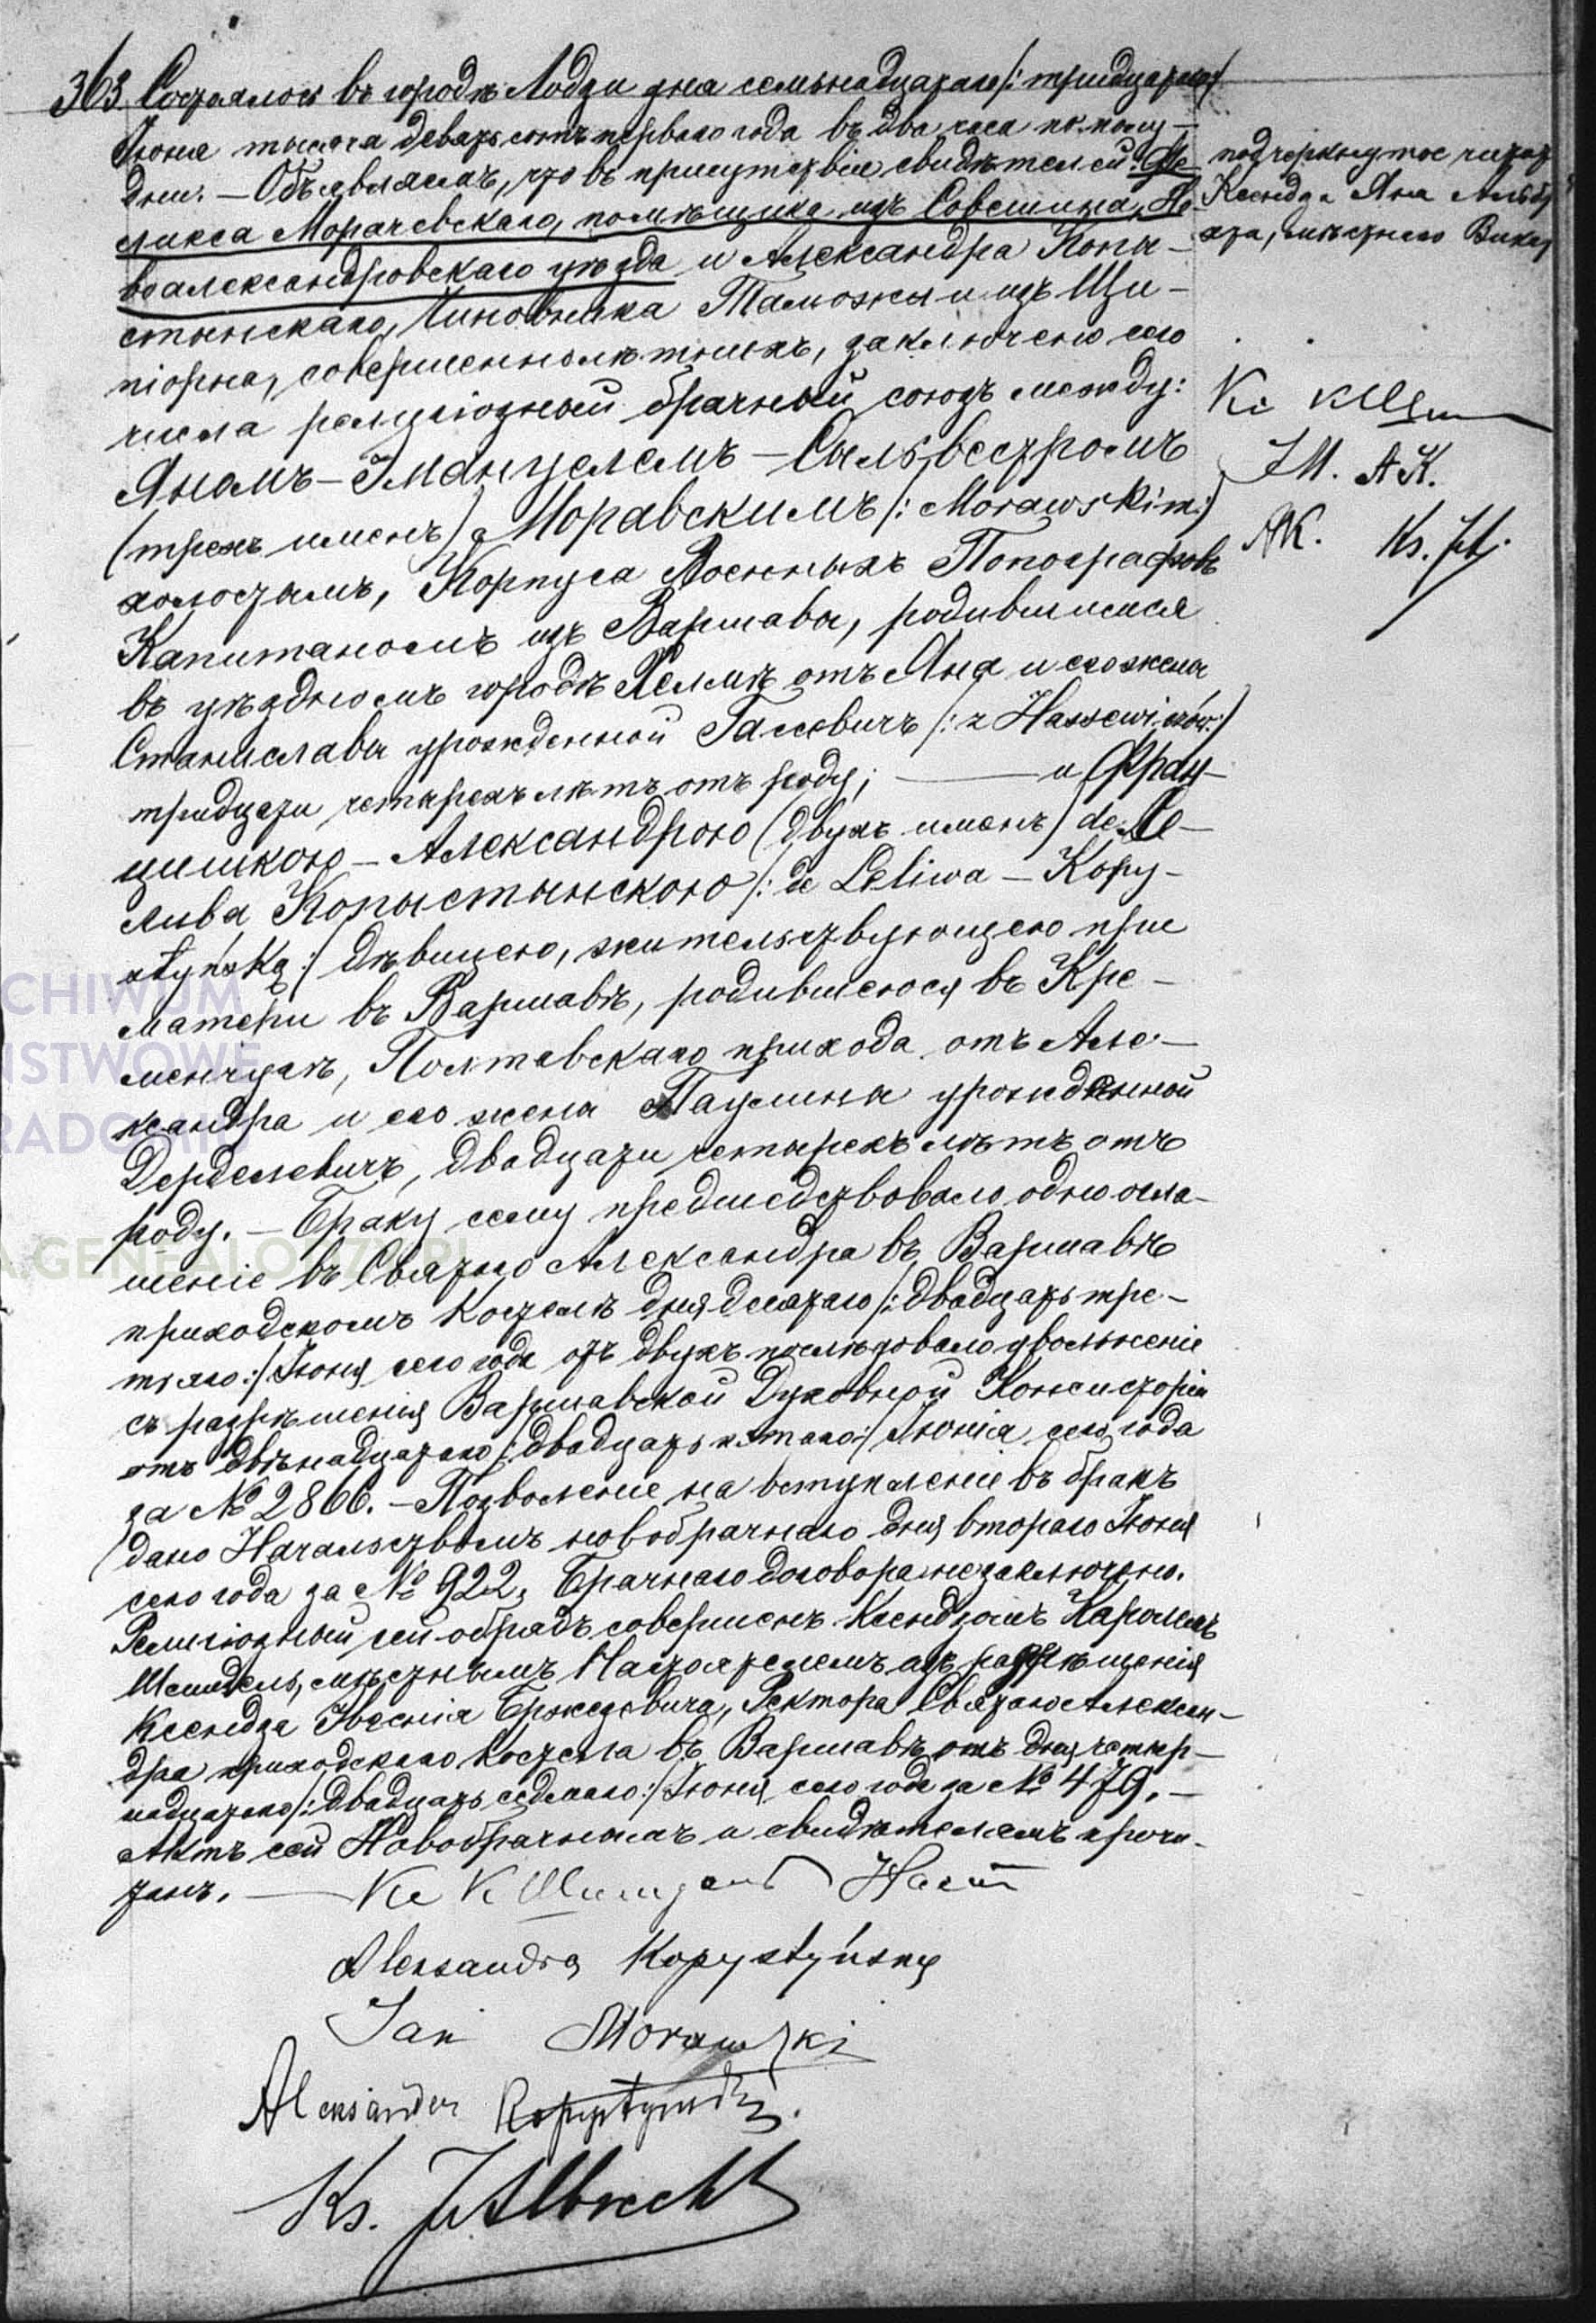 363. Состоялось въ городѣ Лодзи дня семьнадцатаго /: тридцатаго :/
Іюня тысяча девятьсотъ перваго года въ два часа по полу-
дни. — Объявляемъ, что въ присутствіи свидѣтелей: Фе-
ликса Морачевскаго, помѣщика изъ Совешина, Но-
воалександровскаго уѣзда и Александра Копы-
стынскаго, Чиновника Таможни изъ Щи-
піорна, совершеннолѣтнихъ, заключенъ сего
числа религіозный брачный союзъ между:
Яномъ-Эмануелемъ-Сильвестромъ
(трехъ именъ) Моравскимъ /: Morawskim :/
холостымъ, Корпуса Военныхъ Топографовъ
Капитаномъ изъ Варшавы, родившимся
въ уѣздномъ городѣ Хелмѣ отъ Яна и его жены
Станиславы урожденной Гассевичъ /: z Hassewiczów :/
тридцати четырехъ лѣтъ отъ роду; — и Фран-
цишкою-Александрою (двухъ именъ) de Ле-
лива Копыстынскою /: de Leliwa - Kopy-
styńską :/ дѣвицею, жительствующею при
матери въ Варшавѣ, родившеюся въ Кре-
менчугѣ, Полтавскаго прихода отъ Але-
ксандра и его жены Паулины урожденной
Дерделевичъ, двадцати четырехъ лѣтъ отъ
роду. — Браку сему предшедствовало одно огла-
шеніе въ Святого Александра въ Варшавѣ
приходскомъ Костелѣ дня десятаго /: двадцать тре-
тьяго :/ Іюня сего года отъ двухъ послѣдовало увольненіе
съ разрѣшенія Варшавской Духовной Консисторіи
отъ двѣнадцатаго /: двадцать пятаго :/ Іюня сего года
за № 2866. — Позволеніе на вступленіе въ бракъ
дано Начальствомъ новобрачнаго дня втораго Іюня
сего года за № 922. Брачнаго договора не заключено.
Религіозный сей обрядъ совершенъ Ксендзомъ Каролемъ
Шмидель, мѣстнымъ Настоятелемъ изъ разрѣшенія
Ксендза Бржезевича, Ректора Святаго Алексан-
дра приходскаго Костела въ Варшавѣ отъ дня четыр-
надцатаго /: двадцать седьмаго :/ Іюня сего года за № 479. —
Актъ сей Новобрачнымъ и свидѣтелямъ прочи-
танъ. —
Кс К Шмидель Наст
Aleksandra Kopystyńska
Jan Morawski
Aleksander Kopystyński
Ks. J Albrecht
подчеркнутое читать
Ксендза Яна Альбр
хта, мѣстнаго Викар
Кс К Шм
J M. A K.
AK. Ks. JA.